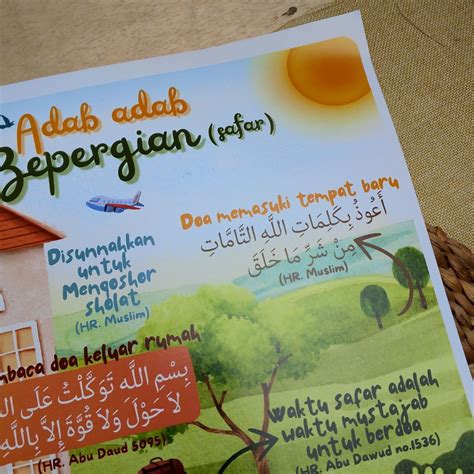 Adab adab
Bepergian (safar)
Doa memasuki tempat baru
أَعُوذُ بِكَلِمَاتِ اللَّهِ التَّامَّاتِ
مِنْ شَرِّ مَا خَلَقَ
(HR. Muslim)
Disunnahkan
untuk
Mengoshor
sholat
(HR. Muslim)
baca doa keluar rumah
بِسْمِ اللَّهِ تَوَكَّلْتُ عَلَى
لاَ حَوْلَ وَلاَ قُوَّةَ إِلاَّ بِاللَّهِ
(HR. Abu Daud 5095)
waktu safar adalah
waktu mustajab
untuk berdoa
(HR. Abu Dawud no.1536)